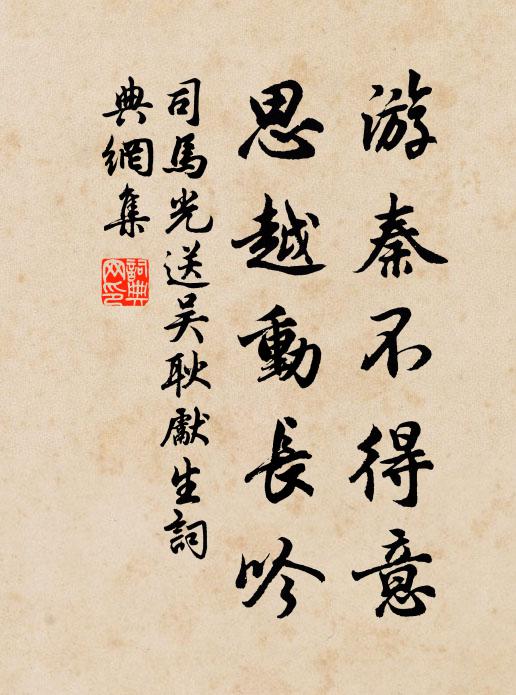 游秦不得意
思越動長吟
司馬光送吴耿獻生詞
典網集
詞典
网印